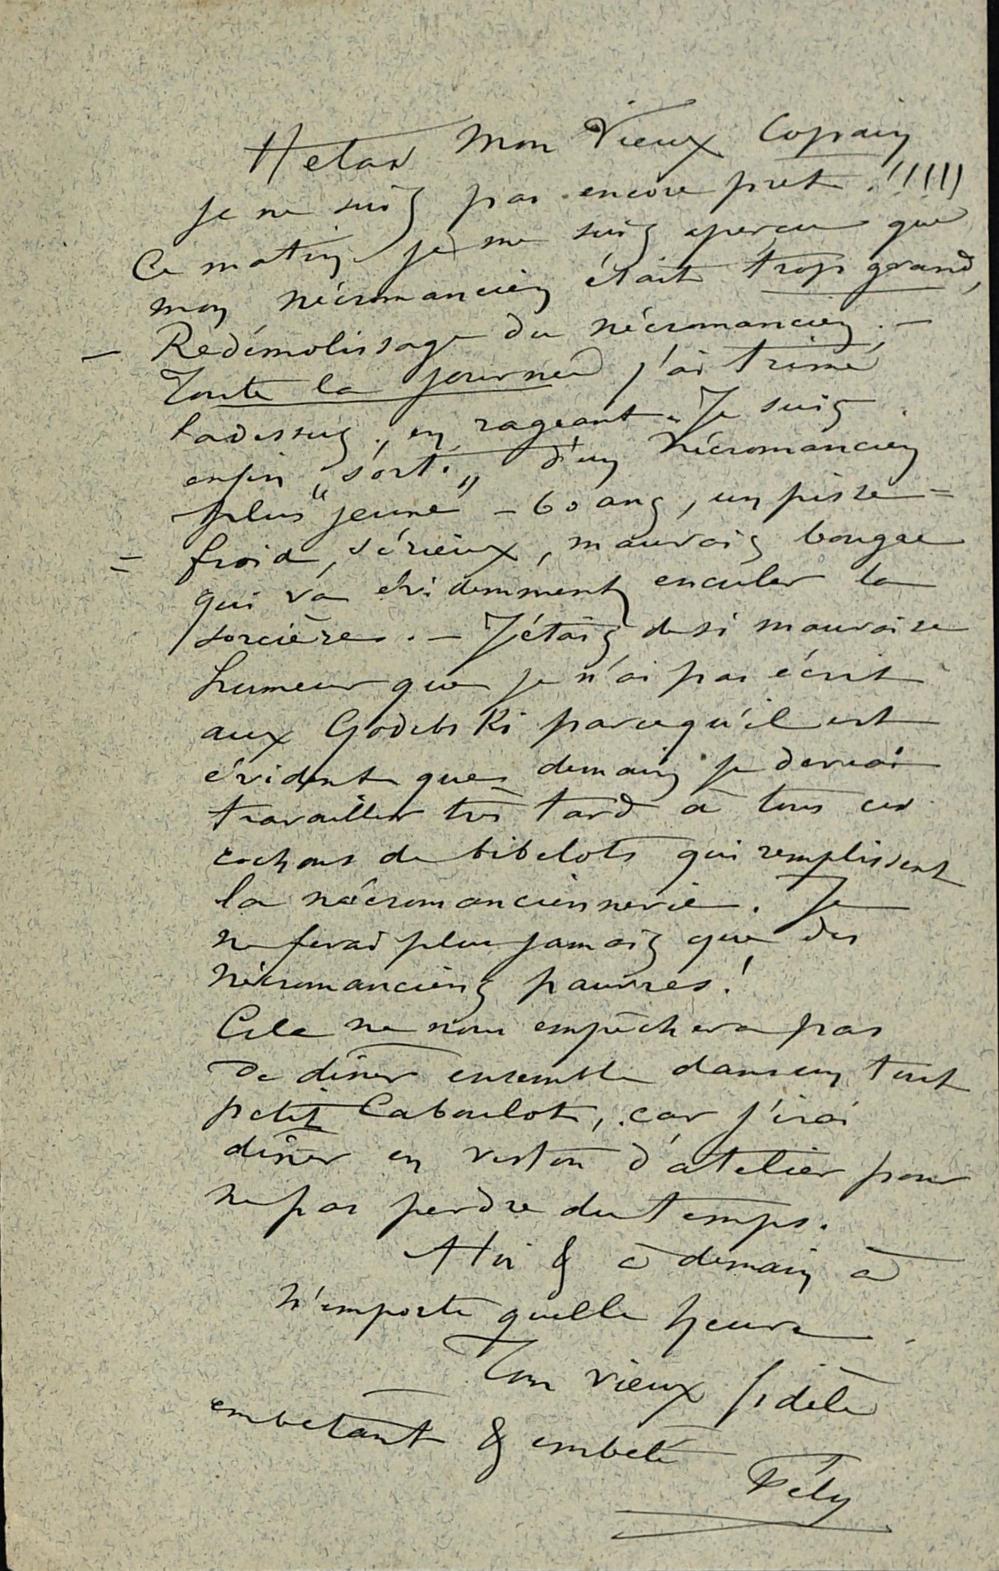 Helas Mon Vieux Copain
je ne suis pas encore pret !!!!!
Ce matin je me suis aperçu que
mon nécromancien était trop grand,
— Redémolissage du nécromancien. —
Toute la journée j'ai trimé
ladessus, en rageant. Je suis
enfin „sorti„ d'un Nécromancien
plus "jeune" — 60 ans, un pisse =
= froid, sérieux, mauvais bougre
qui va évidemment enculer la
sorcière. — J'étais de si mauvaise
humeur que je n'ai pas écrit
aux Godebski parcequ'il est
évident que demain je devrai
travailler très tard à tous ces
cochons de bibelots qui remplissent
la nécromanciennerie. Je
ne ferai plus jamais que des
nécromanciens pauvres!
Cela ne nous empêchera pas
De dîner ensemble dans un tout
petit Caboulot, car j'irai
dîner en veston d'atelier pour
ne pas perdre du temps.
A toi & à demain à
n'importe quelle heure
Ton vieux fidèle
embetant & embeté
Fély